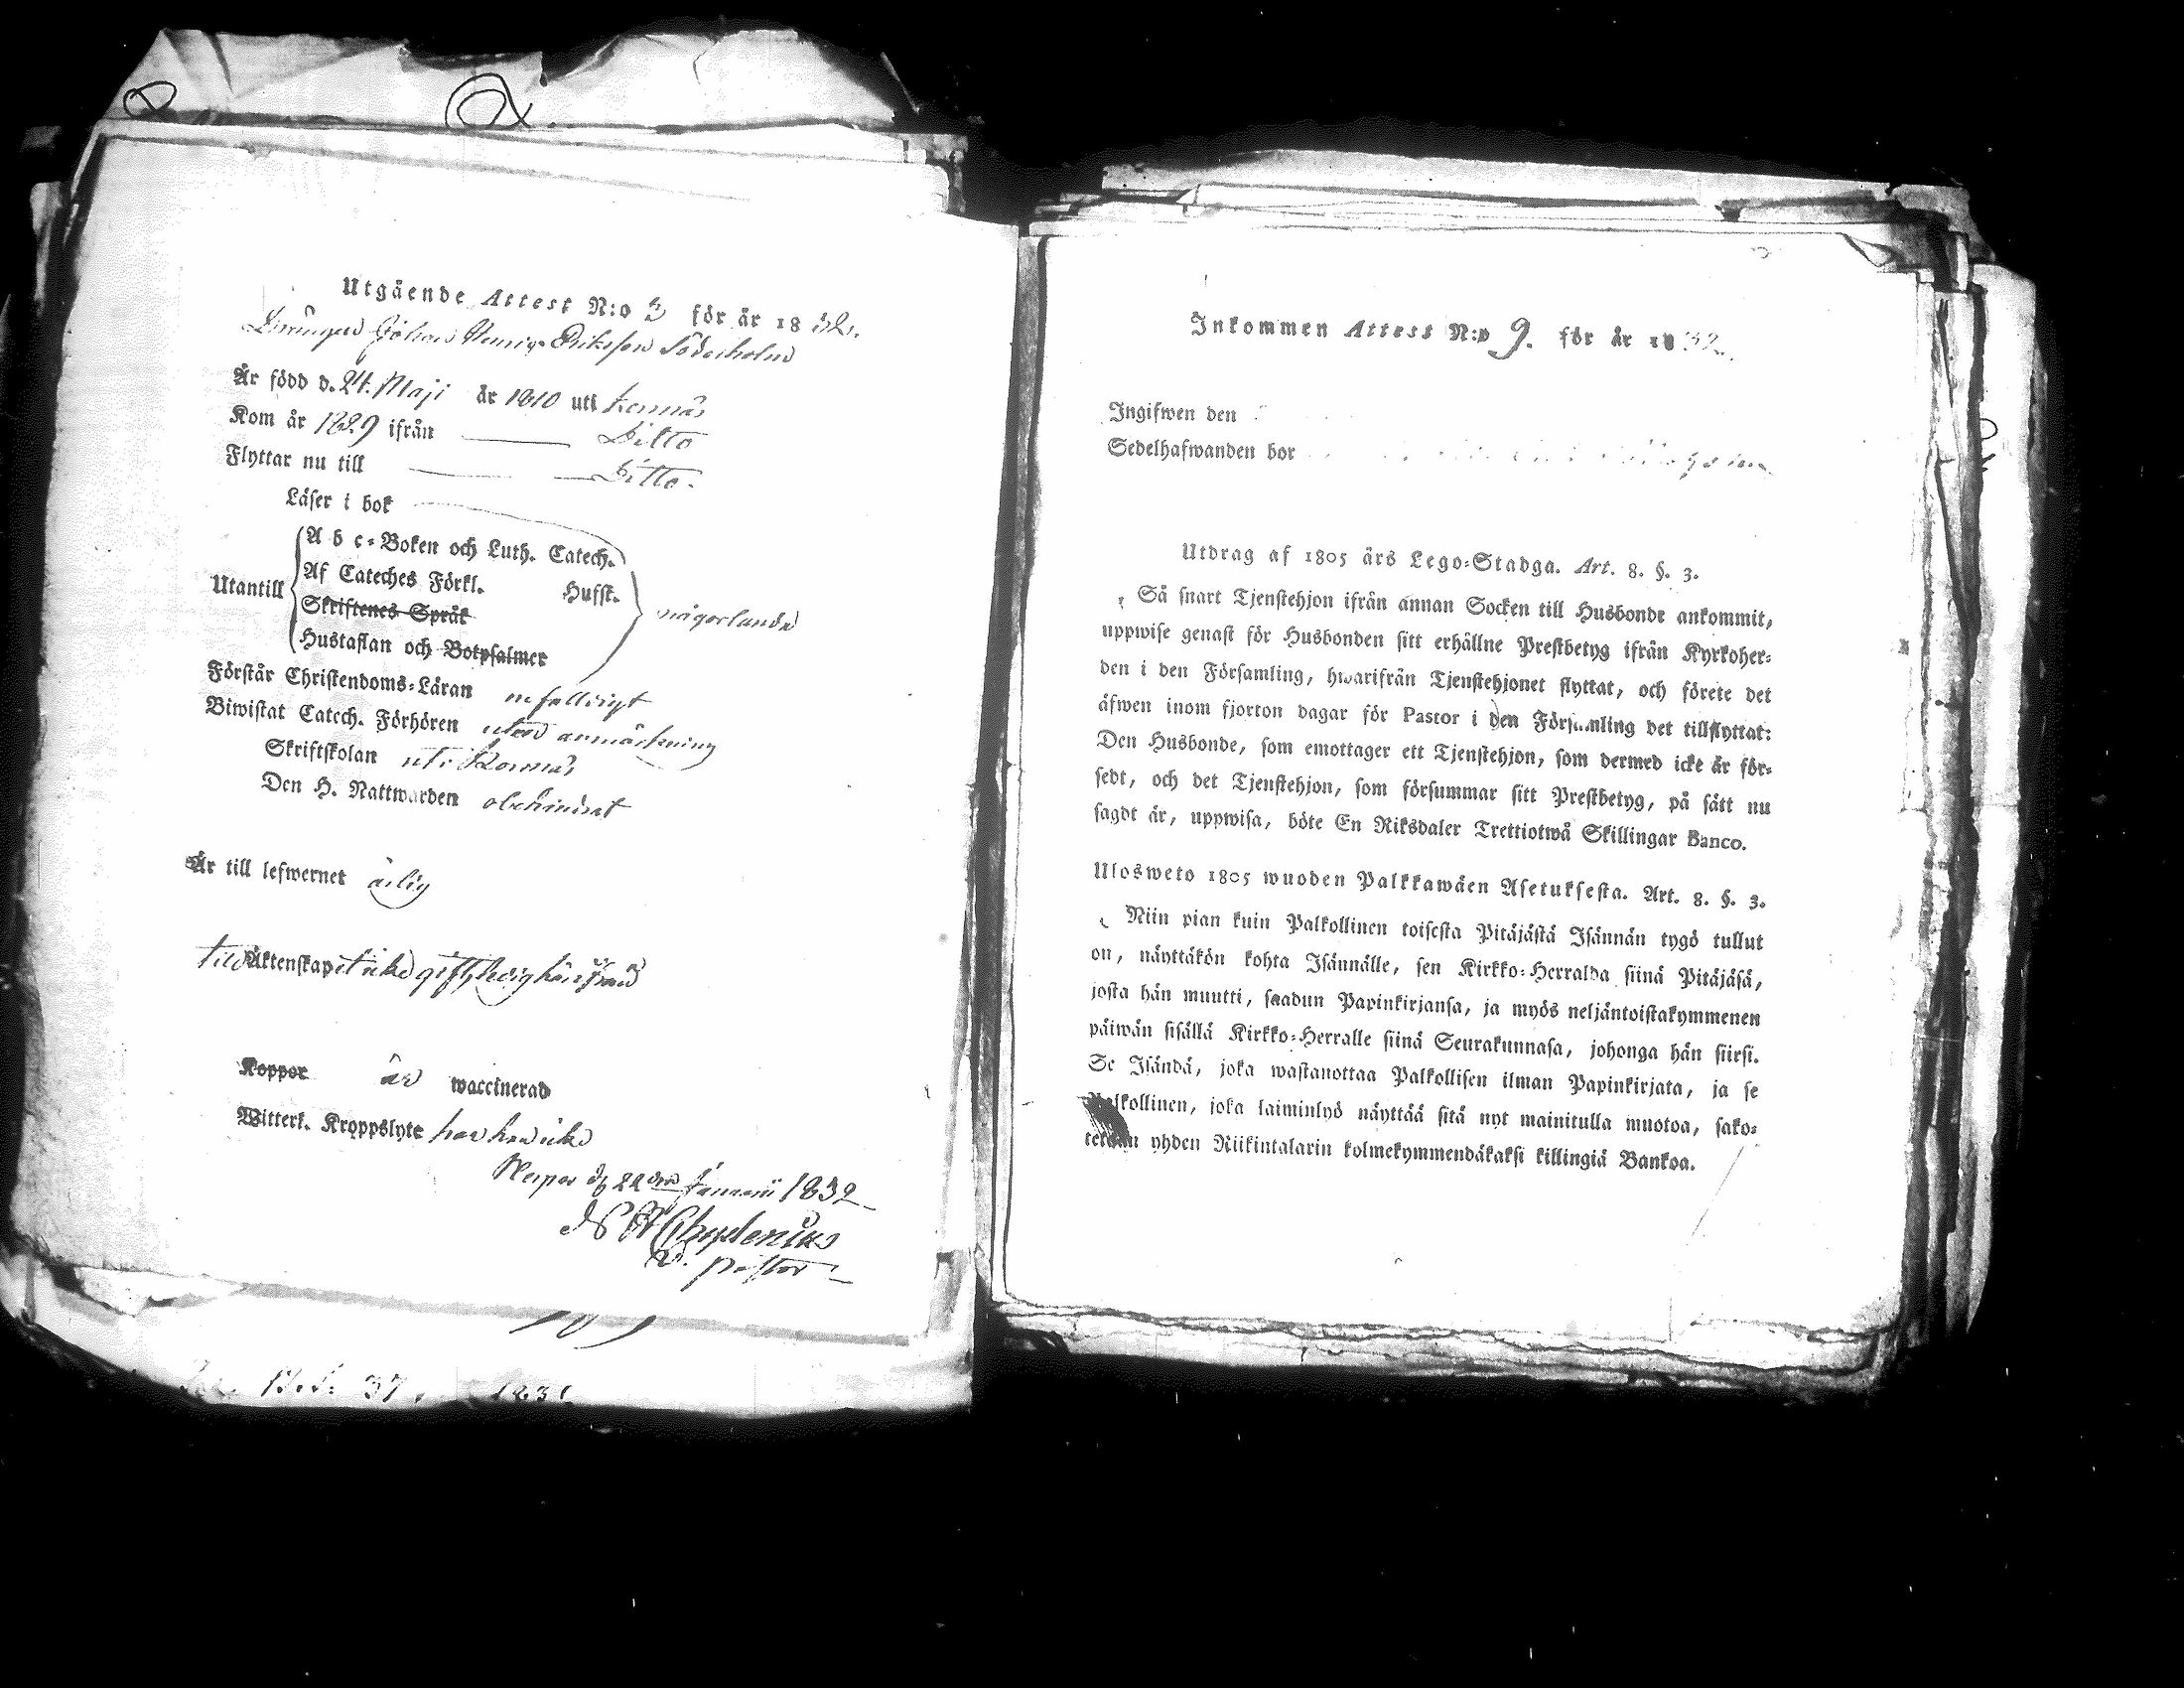 Utgående Attest N:o 3 för år 1832.
Drängen Johan Henric Eriksson Söderholm
År född d. 24. Maji år 1810 uti Kornnäs
Kom år 1829 ifrån Ditto
Flyttar nu till Ditto.
Läser i bok
A b c-Boken och Luth. Catech.
Af Cateches Förkl. Hufst.
Utantill
Skriftenes Språk
någorlunda
Hustaflan och Botpsalmer
Förstår Christendoms-Läran enfalldigt
Biwistat Catech. Förhören utan anmärkning
Skriftskolan uti
Den H. Nattwarden obehindrat
Är till lefwernet ärlig
till Äktenskap icke gift, ledig härifrån
Koppor är waccinerad
Witterl. Kroppslyte har han icke
Nerpes d. 22dra Januarii 1832
Chydenius
V. Pastor
101
37. 1831
Inkommen Attest N:o 9. för år 1832.
Ingifwen den
Sedelhafwanden bor
Utdrag af 1805 års Lego-Stadga. Art. 8. §. 3.
Så snart Tjenstehjon ifrån annan Socken till Husbonde ankommit,
uppwise genast för Husbonden sitt erhållne Prestbetyg ifrån Kyrkoher-
den i den Församling, hwarifrån Tjenstehjonet flyttat, och förete det
äfwen inom fjorton dagar för Pastor i den Församling det tillflyttat:
Den Husbonde, som emottager ett Tjenstehjon, som dermed icke är för-
sedt, och det Tjenstehjon, som försummar sitt Prestbetyg, på sätt nu
sagdt är, uppwisa, böte En Riksdaler Trettiotwå Skillingar Banco.
Ulosweto 1805 wuoden Palkkawäen Asetuksesta. Art. 8. §. 3.
Niin pian kuin Palkollinen toisesta Pitäjästä Isännän tygö tullut
on, näyttäkön kohta Isännälle, sen Kirkko-Herralda siinä Pitäjäsä,
josta hän muutti, saadun Papinkirjansa, ja myös neljäntoistakymmenen
päiwän sisällä Kirkko-Herralle siinä Seurakunnasa, johonga hän siirsi.
Se Isändä, joka wastanottaa Palkollisen ilman Papinkirjata, ja se
Palkollinen, joka laiminlyö näyttää sitä nyt mainitulla muotoa, sako-
tetaan yhden Riikintalarin kolmekymmendäkaksi killingiä Bankoa.